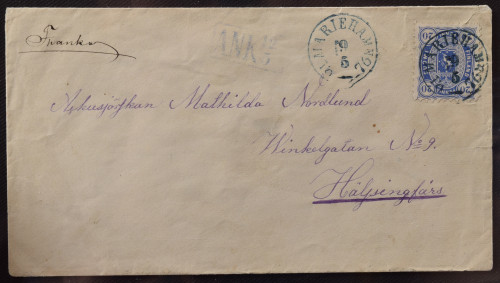 Franko
ANK
MARIEHAMN
29
5
MARIEHAMN
29
5
20 20
20 20
Mathilda Nordlund
Winkelgatan No 9.
Hälsingfårs